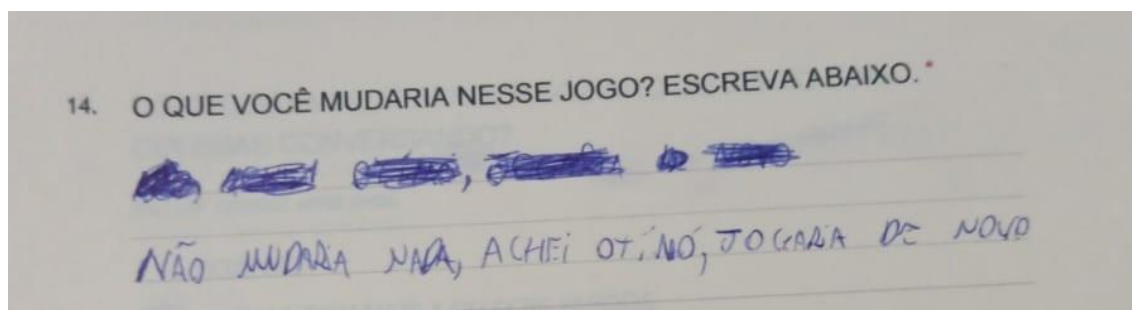 14. O QUE VOCÊ MUDARIA NESSE JOGO? ESCREVA ABAIXO. *
NÃO MUDARIA NADA, ACHEI OTÍNÓ, JOGARIA DE NOVO